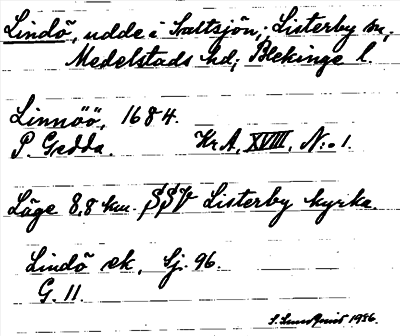 Lindö, udde i Saltsjön, Listerby sn,
Medelstads hd, Blekinge l.
Linnöö, 1684.
P. Gedda. Kr A, XVIII, N:o 1.
Läge 8,8 km. SSV Listerby kyrka.
Lindö ek, Sj. 96.
G. 11.
S. Lundqvist 1926.